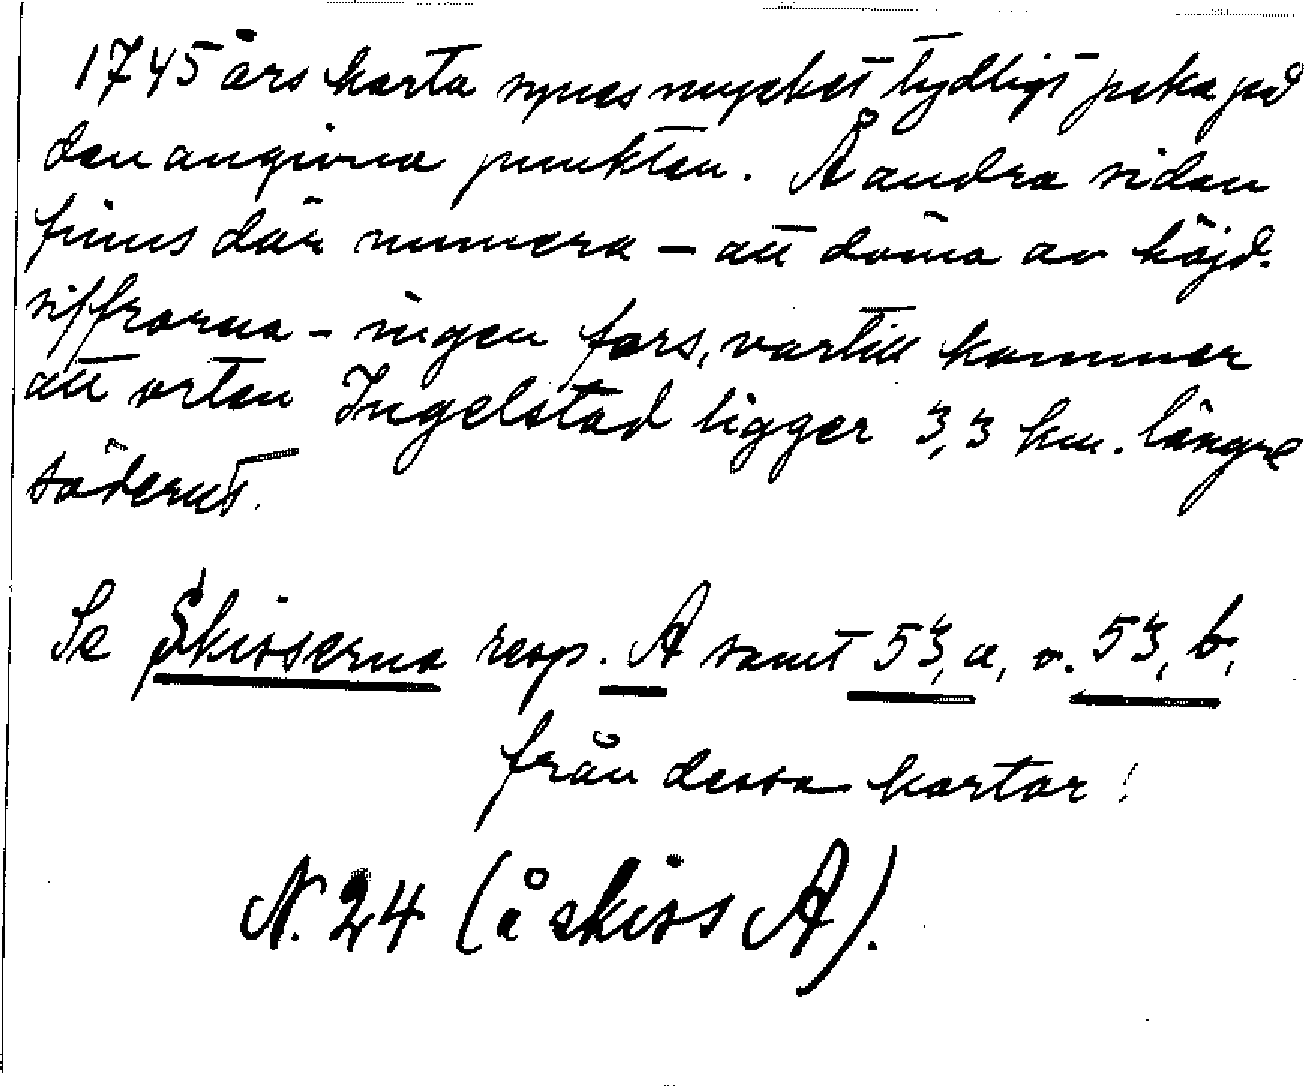 1745 års karta synes mycket tydligt peka på
den angivna punkten. Å andra sidan
finns där numera – att döma av höjd-
siffrorna – ingen fors, vartill kommer
att orten Ingelstad ligger 3,3 km. längre
söderut.
Se Skisserna resp. A samt 53, a, o. 53, b,
från dessa kartor!
N. 24 (å skiss A).